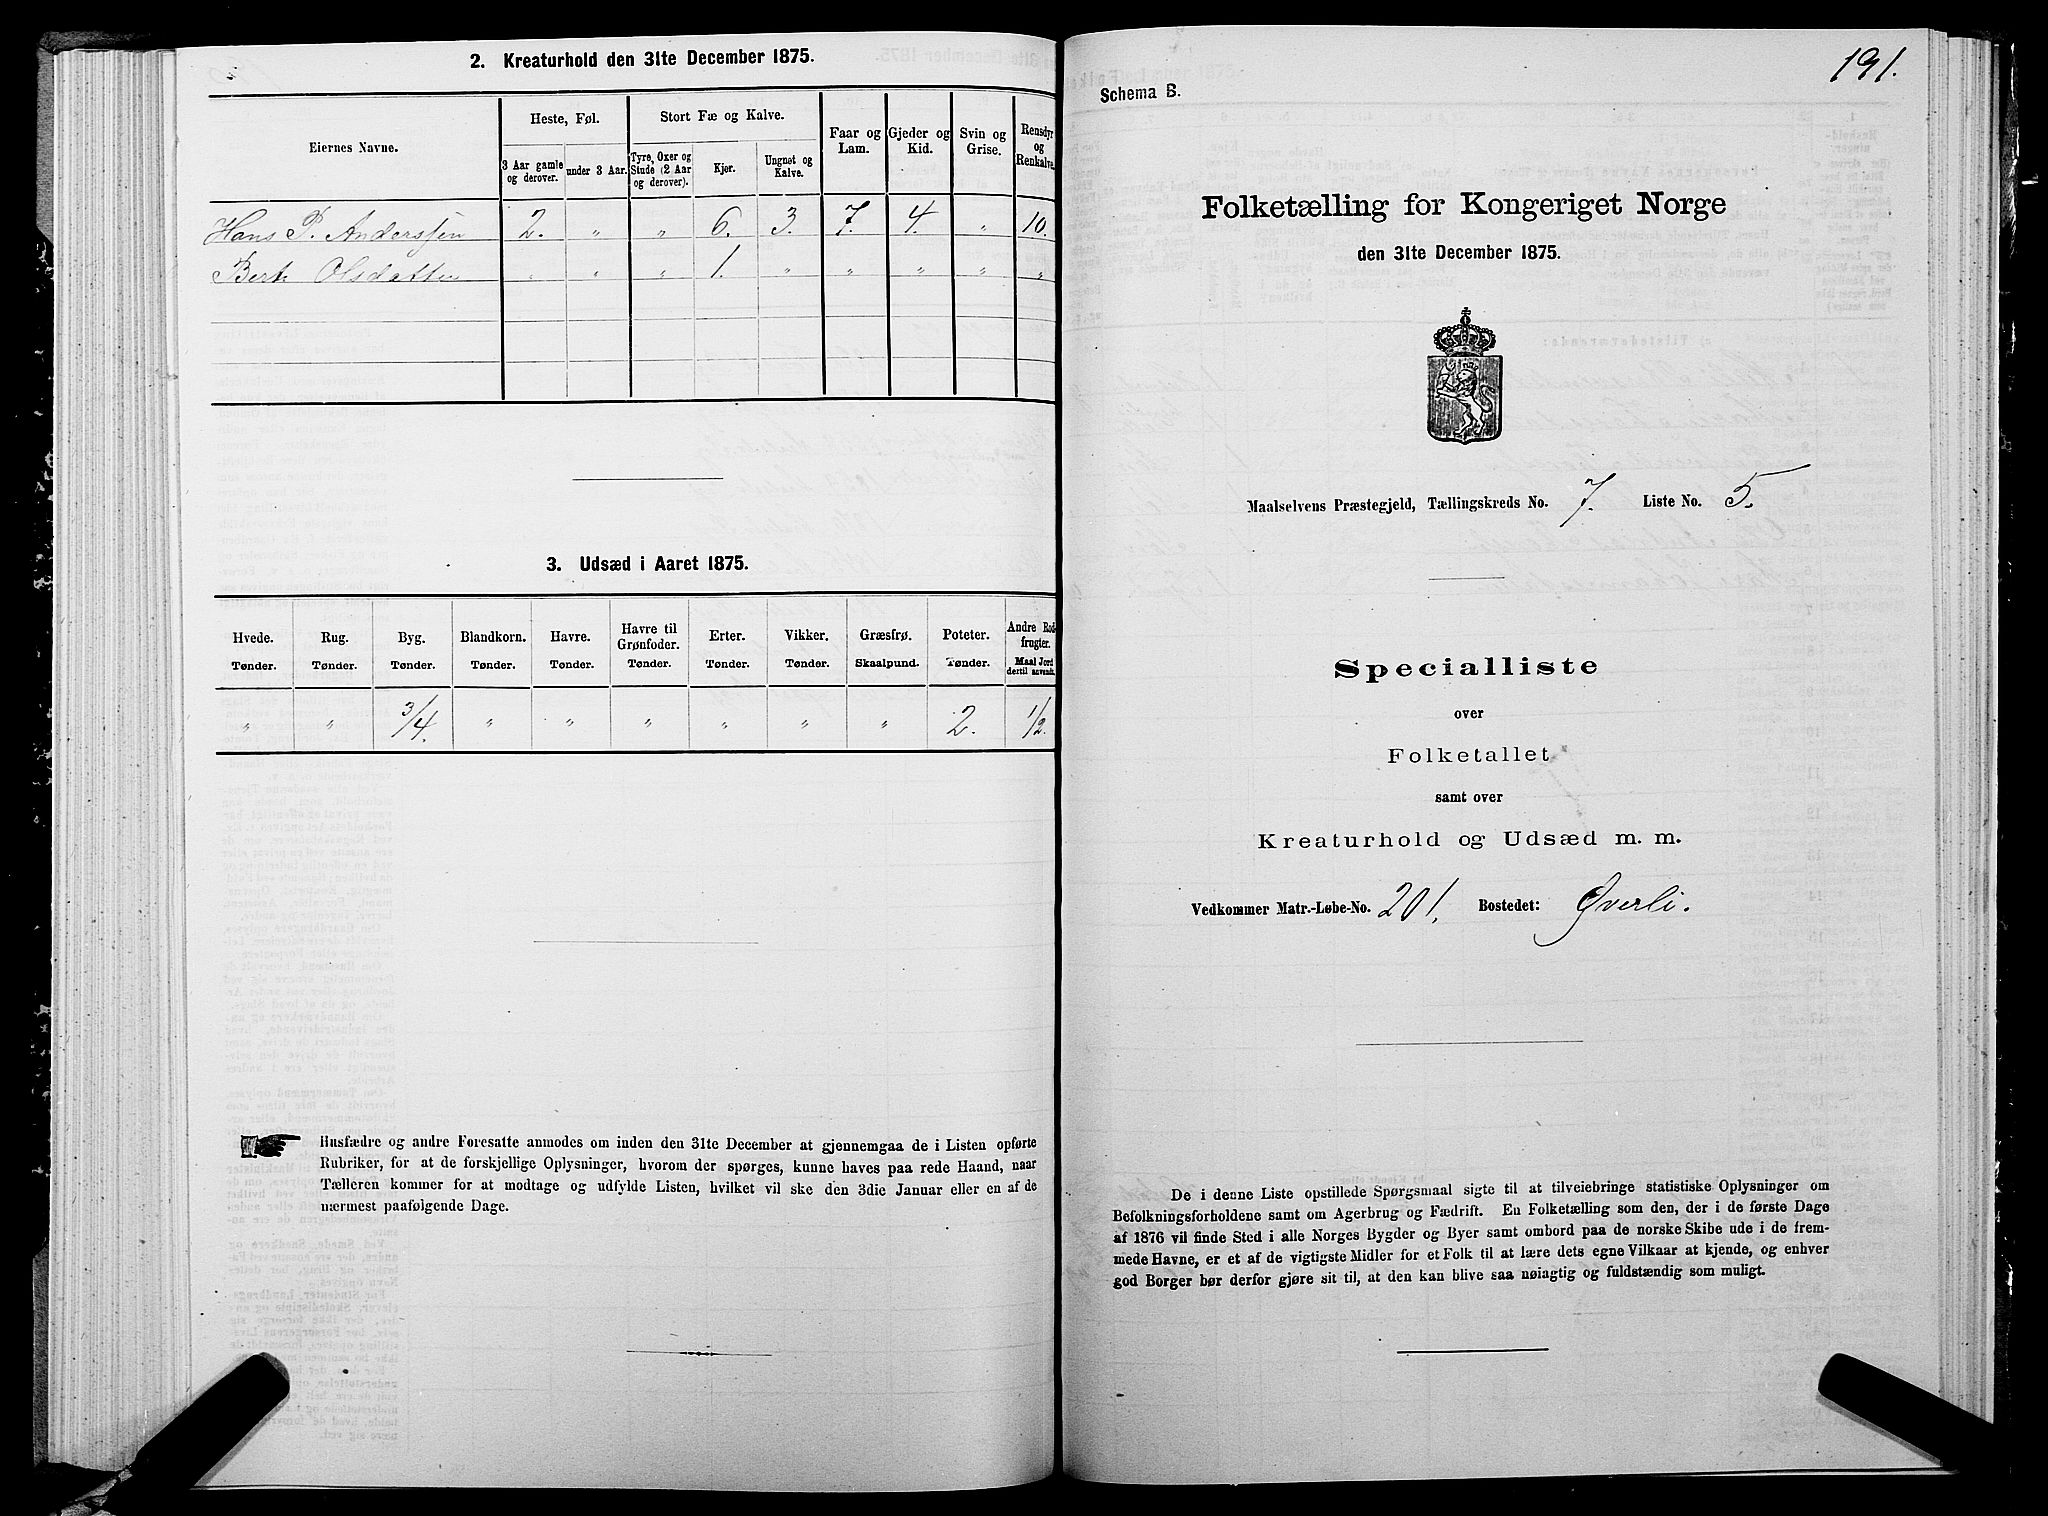 2. Kreaturhold den 31te December 1875.
Eiernes Navne.
Heste, Føl.
Stort Fæ og Kalve.
Faar og Lam.
Gjeder og Kid.
Svin og Grise.
Rensdyr og Renkalve.
3 Aar gamle og derover.
under 3 Aar.
Tyre, Oxer og Stude (2 Aar og derover).
Kjør.
Ungnet og Kalve.
Hans P. Anderssen 2. " " 6. 3. 7. 4. " 10.
Bert Olsdatter " " " 1. " " " " "
3. Udsæd i Aaret 1875.
Hvede. Rug. Byg. Blandkorn. Havre. Havre til Grønfoder. Erter. Vikker. Græsfrø. Poteter. Andre Rodfrugter.
Tønder. Tønder. Tønder. Tønder. Tønder. Tønder. Tønder. Tønder. Skaalpund. Tønder. Maal Jord dertil anvendt.
" " 3/4. " " " " " " 2. 1/2.
Husfædre og andre Foresatte anmodes om inden den 31te December at gjennemgaa de i Listen opførte
Rubriker, for at de forskjellige Oplysninger, hvorom der spørges, kunne haves paa rede Haand, naar
Tælleren kommer for at modtage og udfylde Listen, hvilket vil ske den 3die Januar eller en af de
nærmest paafølgende Dage.
191.
Schema B.
Folketælling for Kongeriget Norge
den 31te December 1875.
Maalselvens Præstegjeld, Tællingskreds No. 7. Liste No. 5.
Specialliste
over
Folketallet
samt over
Kreaturhold og Udsæd m. m.
Vedkommer Matr.-Løbe-No. 201. Bostedet: Øverli.
De i denne Liste opstillede Spørgsmaal sigte til at tilveiebringe statistiske Oplysninger om
Befolkningsforholdene samt om Agerbrug og Fædrift. En Folketælling som den, der i de første Dage
af 1876 vil finde Sted i alle Norges Bygder og Byer samt ombord paa de norske Skibe ude i de frem-
mede Havne, er et af de vigtigste Midler for et Folk til at lære dets egne Vilkaar at kjende, og enhver
god Borger bør derfor gjøre sit til, at den kan blive saa nøiagtig og fuldstændig som muligt.